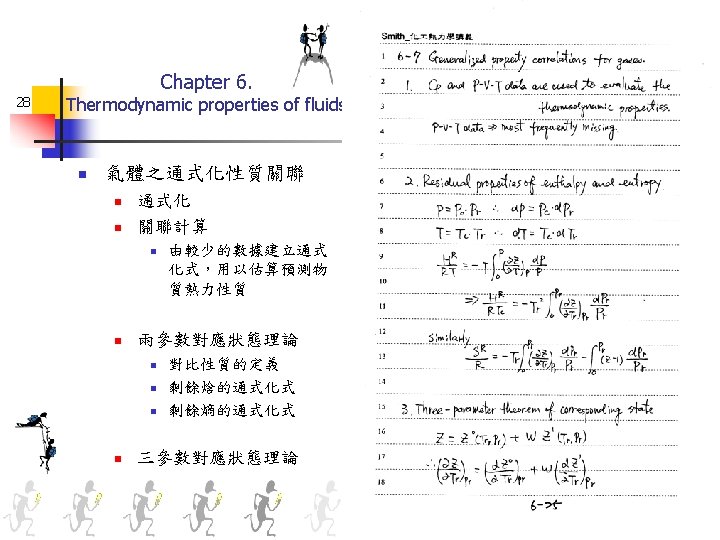 28
Chapter 6.
Thermodynamic properties of fluids
氣體之通式化性質關聯
通式化
關聯計算
由較少的數據建立通式
化式，用以估算預測物
質熱力性質
兩參數對應狀態理論
對比性質的定義
剩餘焓的通式化式
剩餘熵的通式化式
三參數對應狀態理論
Smith_化工熱力學講義
1 6-7 Generalized property correlations for gases.
2 1. Cp and P-V-T data are used to evaluate the
3 thermodynamic properties.
4 P-V-T data ⇒ most frequently missing.
5
6 2. Residual properties of enthalpy and entropy
7 P = Pc·Pr ∴ dP = Pc·dPr
8 T = Tc·Tr ∴ dT = Tc·dTr
9 H^R/RT = -T∫_0^P (∂Z/∂T)_P dP/P
10
11 ⇒ H^R/RTc = -Tr²∫_0^Pr (∂Z/∂Tr)_Pr dPr/Pr
12 similarly
13 S^R/R = -Tr∫_0^Pr (∂Z/∂Tr)_Pr dPr/Pr - ∫_0^Pr (Z-1) dPr/Pr
14
15 3. Three-parameter theorem of corresponding state
16 Z = Z°(Tr,Pr) + W Z'(Tr,Pr)
17 ∴(∂Z/∂Tr)_Pr = (∂Z°/∂Tr)_Pr + W(∂Z'/∂Tr)_Pr
18
6-25